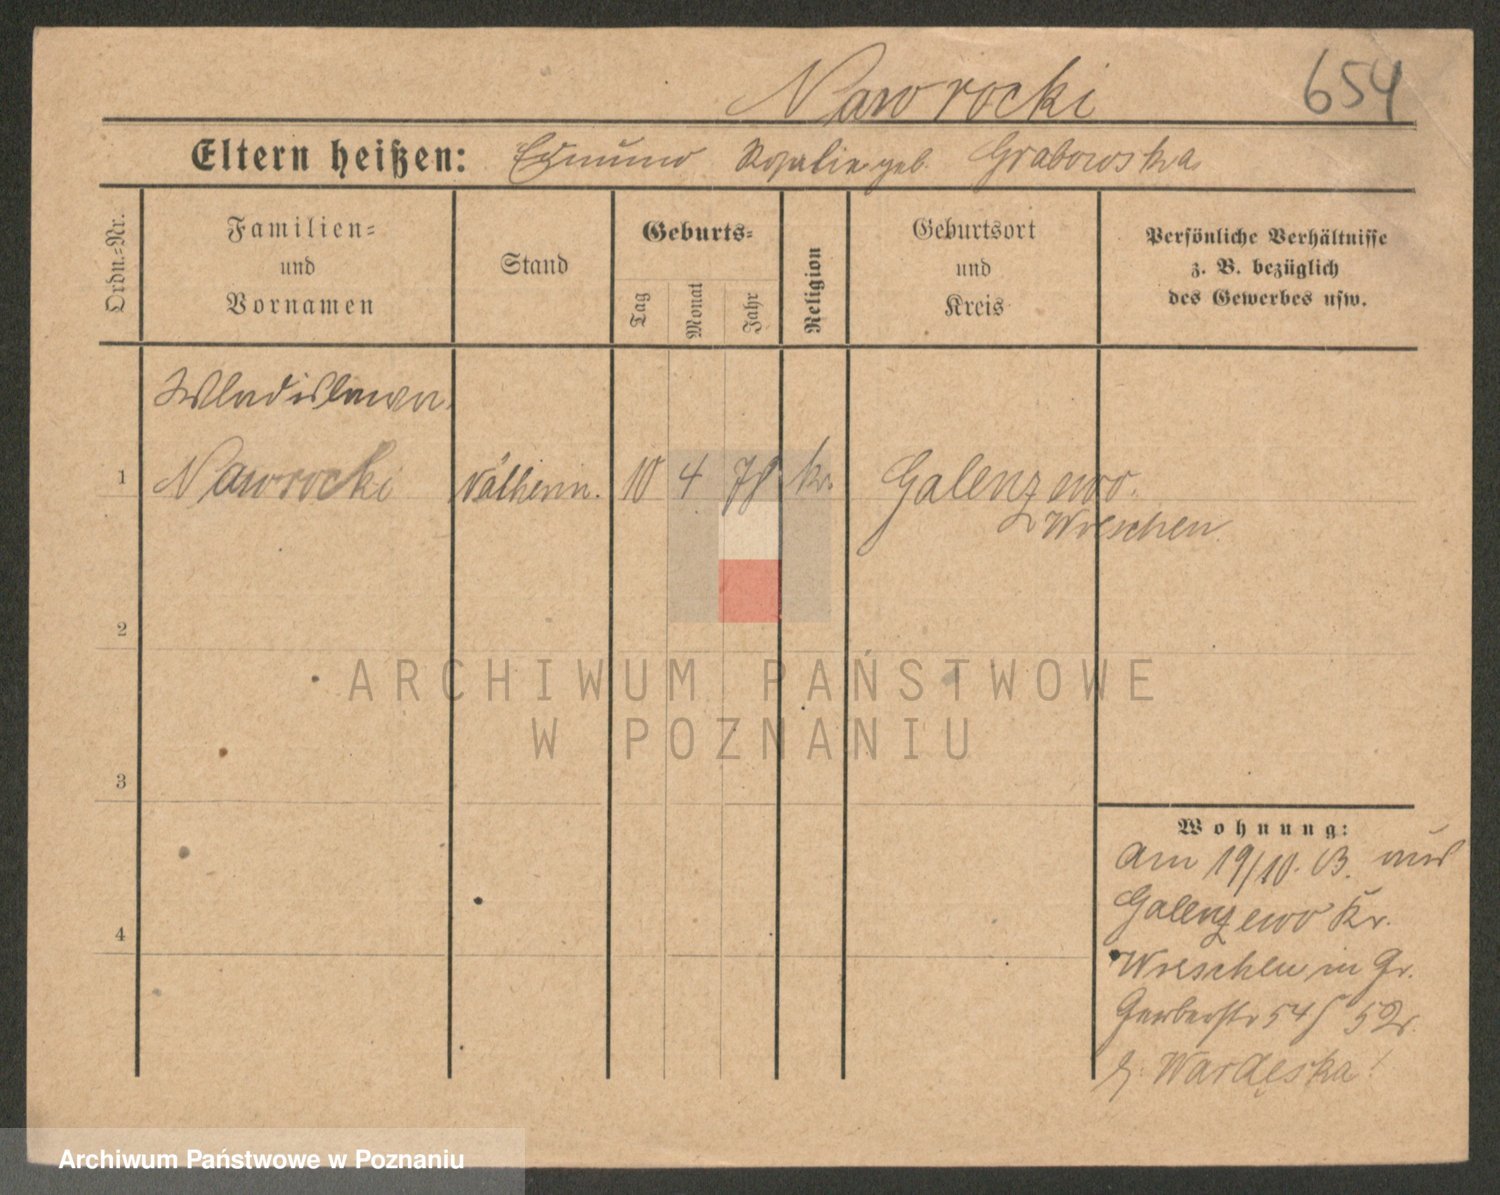 Nawrocki 654
Eltern heißen: Edmund Rosalie geb. Grabowska
Ordn.=Nr.
Familien=
und
Vornamen
Stand
Geburts=
Tag
Monat
Jahr
Religion
Geburtsort
und
Kreis
Persönliche Verhältnisse
z. B. bezüglich
des Gewerbes usw.
Wladislawa
1 Nawrocki Näherin. 10 4 78 k. Galenzewo.
Wreschen
2
3
4
Wohnung:
Am 19/10. 03. aus
Galenzewo Kr.
Wreschen in Gr.
Gerberstr 54
Wardęska!
ARCHIWUM PAŃSTWOWE
W POZNANIU
Archiwum Państwowe w Poznaniu